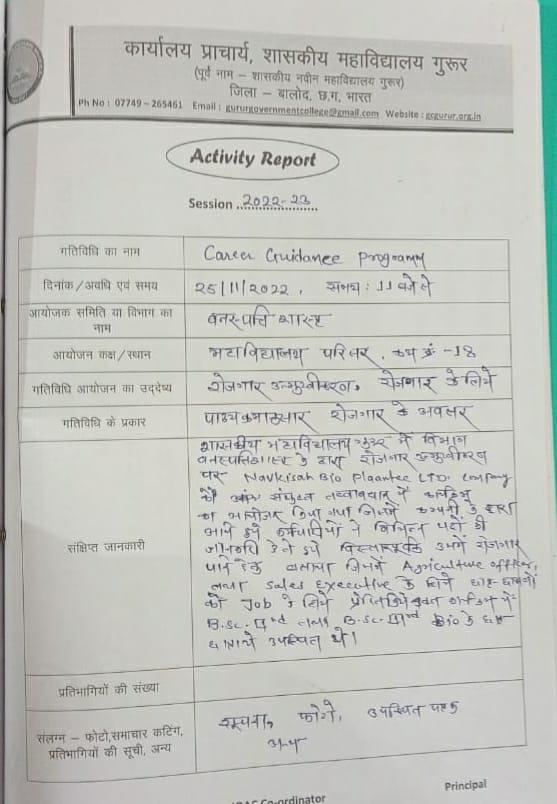 कार्यालय प्राचार्य, शासकीय महाविद्यालय गुरूर
(पूर्व नाम – शासकीय नवीन महाविद्यालय गुरूर)
जिला – बालोद, छ.ग. भारत
Ph No : 07749 – 265461 Email : gururgovernmentcollege@gmail.com Website : gcgurur.org.in
Activity Report
Session ..2022-23..
गतिविधि का नाम
Career Guidance Programm
दिनांक/अवधि एवं समय
25/11/2022, समय : 11 बजे से
आयोजक समिति या विभाग का
नाम
वनस्पति शास्त्र
आयोजन कक्ष/स्थान
महाविद्यालय परिसर, कक्ष क्रं -18
गतिविधि आयोजन का उद्देष्य
रोजगार उन्मुखीकरण, रोजगार के लिये
गतिविधि के प्रकार
पाठ्यक्रमानुसार रोजगार के अवसर
संक्षिप्त जानकारी
शासकीय महाविद्यालय गुरूर में विभाग
वनस्पतिशास्त्र के द्वारा रोजगार उन्मुखीकरण
पर Navkisan Bio Plaantec LTD. Company
के संयुक्त तत्वावधान में
का आयोजन किया गया जिसमें कम्पनी के द्वारा
आये हुये कर्मचारियों ने विभिन्न पदों की
जानकारी देते हुये विस्तारपूर्वक उनमें रोजगार
पाने हेतु बताया जिसमें Agriculture officer,
तथा Sales Executive के लिये छात्र-छात्राओं
को Job के लिये
B.Sc. तथा B.Sc. Bio के छात्र
छात्रायें उपस्थित थे।
प्रतिभागियों की संख्या
संलग्न – फोटो,समाचार कटिंग,
प्रतिभागियों की सूची, अन्य
सूचना, फोटो, उपस्थित पत्रक
अन्य
Co-ordinator
Principal